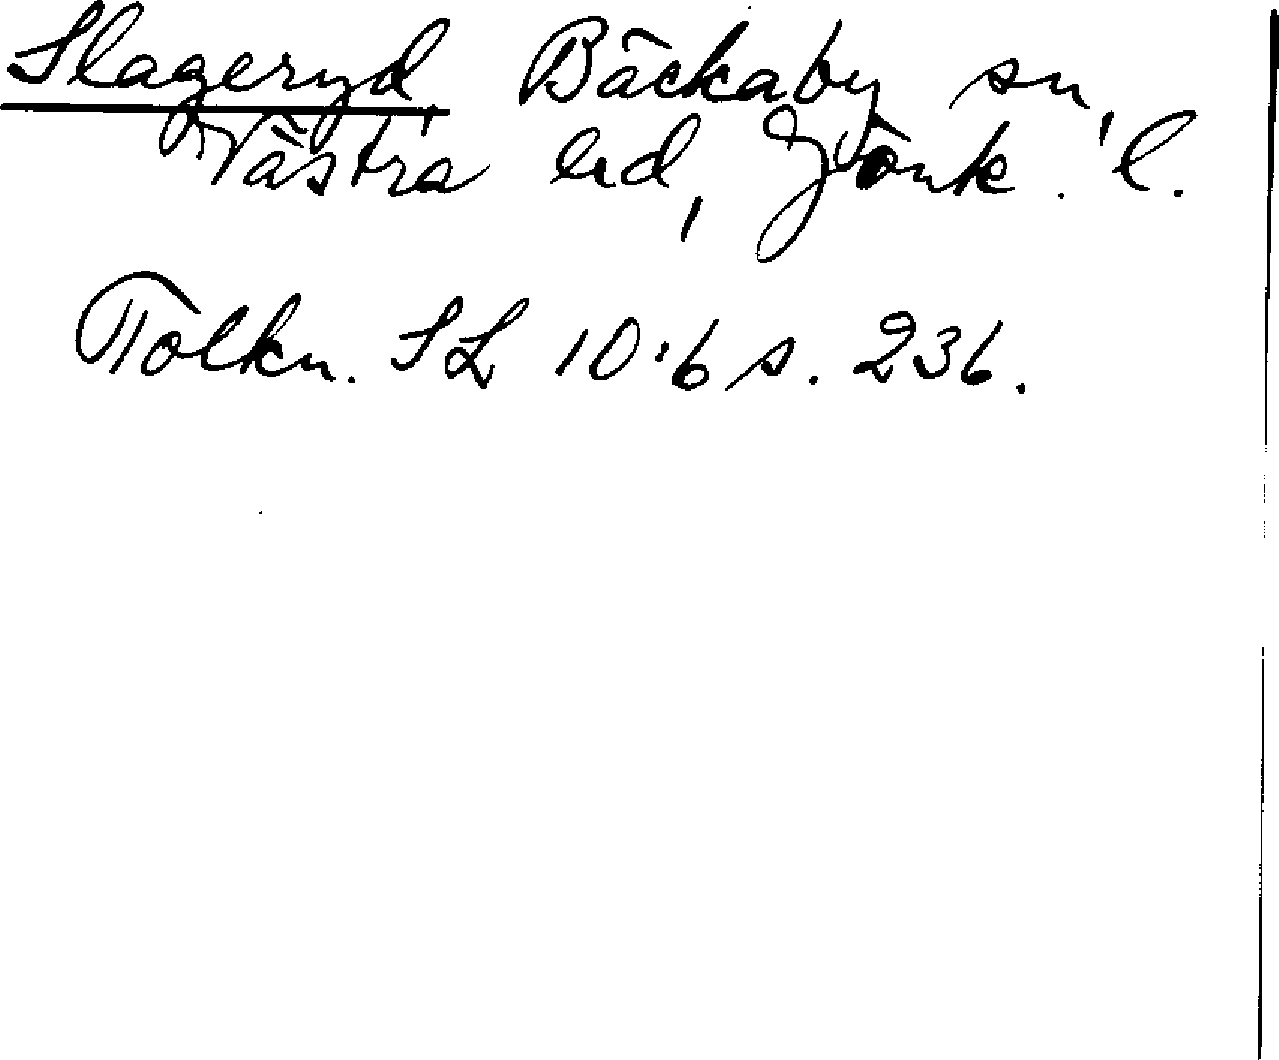 Slageryd, Bäckaby sn,
Västra hd, Jönk. l.
Tolkn. SL 10:6 s. 236.